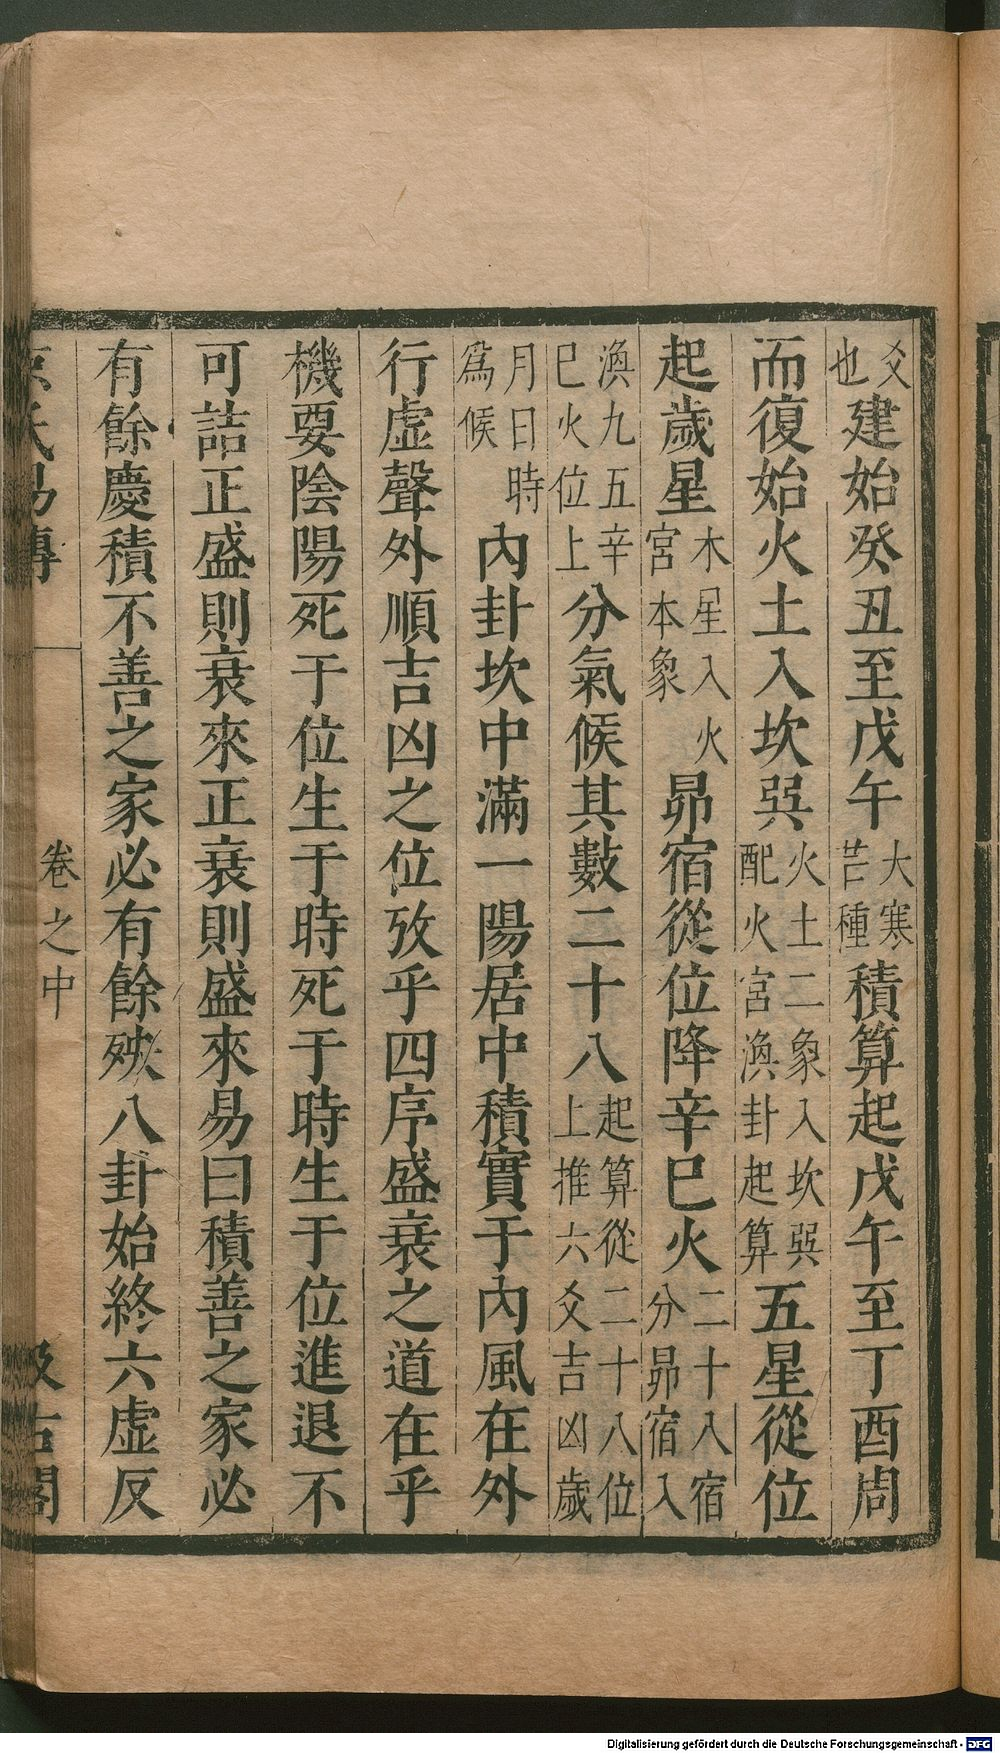 爻也建始癸丑至戊午大寒芒種積算起戊午至丁酉周
而復始火土入坎巽火土二象入坎巽配火宮渙卦起算五星從位
起歲星木星入火宮本象昴宿從位降辛巳火二十八宿分昴宿入
渙九五辛巳火位上分氣候其數二十八起算從二十八位上推六爻吉凶歲
月日時爲候內卦坎中滿一陽居中積實于內風在外
行虛聲外順吉凶之位攷乎四序盛衰之道在乎
機要陰陽死于位生于時死于時生于位進退不
可詰正盛則衰來正衰則盛來易曰積善之家必
有餘慶積不善之家必有餘殃八卦始終六虛反
京氏易傳 卷之中 汲古閣
Digitalisierung gefördert durch die Deutsche Forschungsgemeinschaft - DFG